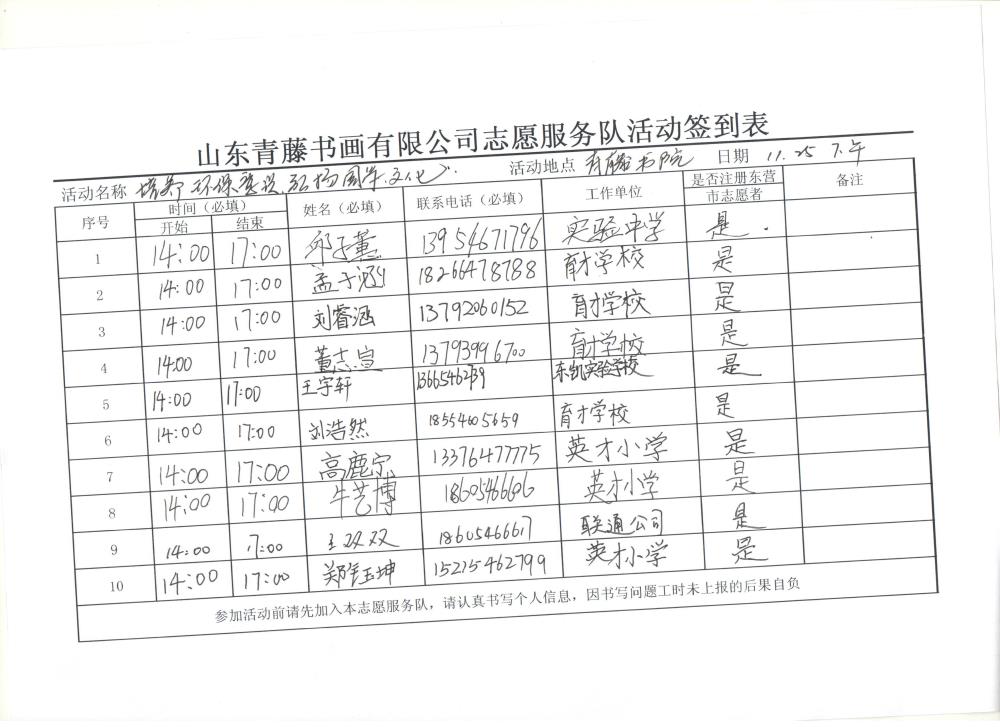 山东青藤书画有限公司志愿服务队活动签到表
活动名称 培养环保意识,弘扬国学文化 活动地点 青藤书院 日期 11.25 下午
序号 时间（必填） 姓名（必填） 联系电话（必填） 工作单位 是否注册东营市志愿者 备注
开始 结束
1 14:00 17:00 邱子薰 13954671796 实验中学 是
2 14:00 17:00 孟子涵 18266478788 育才学校 是
3 14:00 17:00 刘睿涵 13792060152 育才学校 是
4 14:00 17:00 董志宣 13793996700 育才学校 是
5 14:00 17:00 王宇轩 东凯实验学校 是
6 14:00 17:00 刘浩然 18554605659 育才学校 是
7 14:00 17:00 高鹿宗 13376477775 英才小学 是
8 14:00 17:00 牛艺博 18605466606 英才小学 是
9 14:00 17:00 王双双 18605466617 联通公司 是
10 14:00 17:00 郑钰坤 15215462799 英才小学 是
参加活动前请先加入本志愿服务队，请认真书写个人信息，因书写问题工时未上报的后果自负